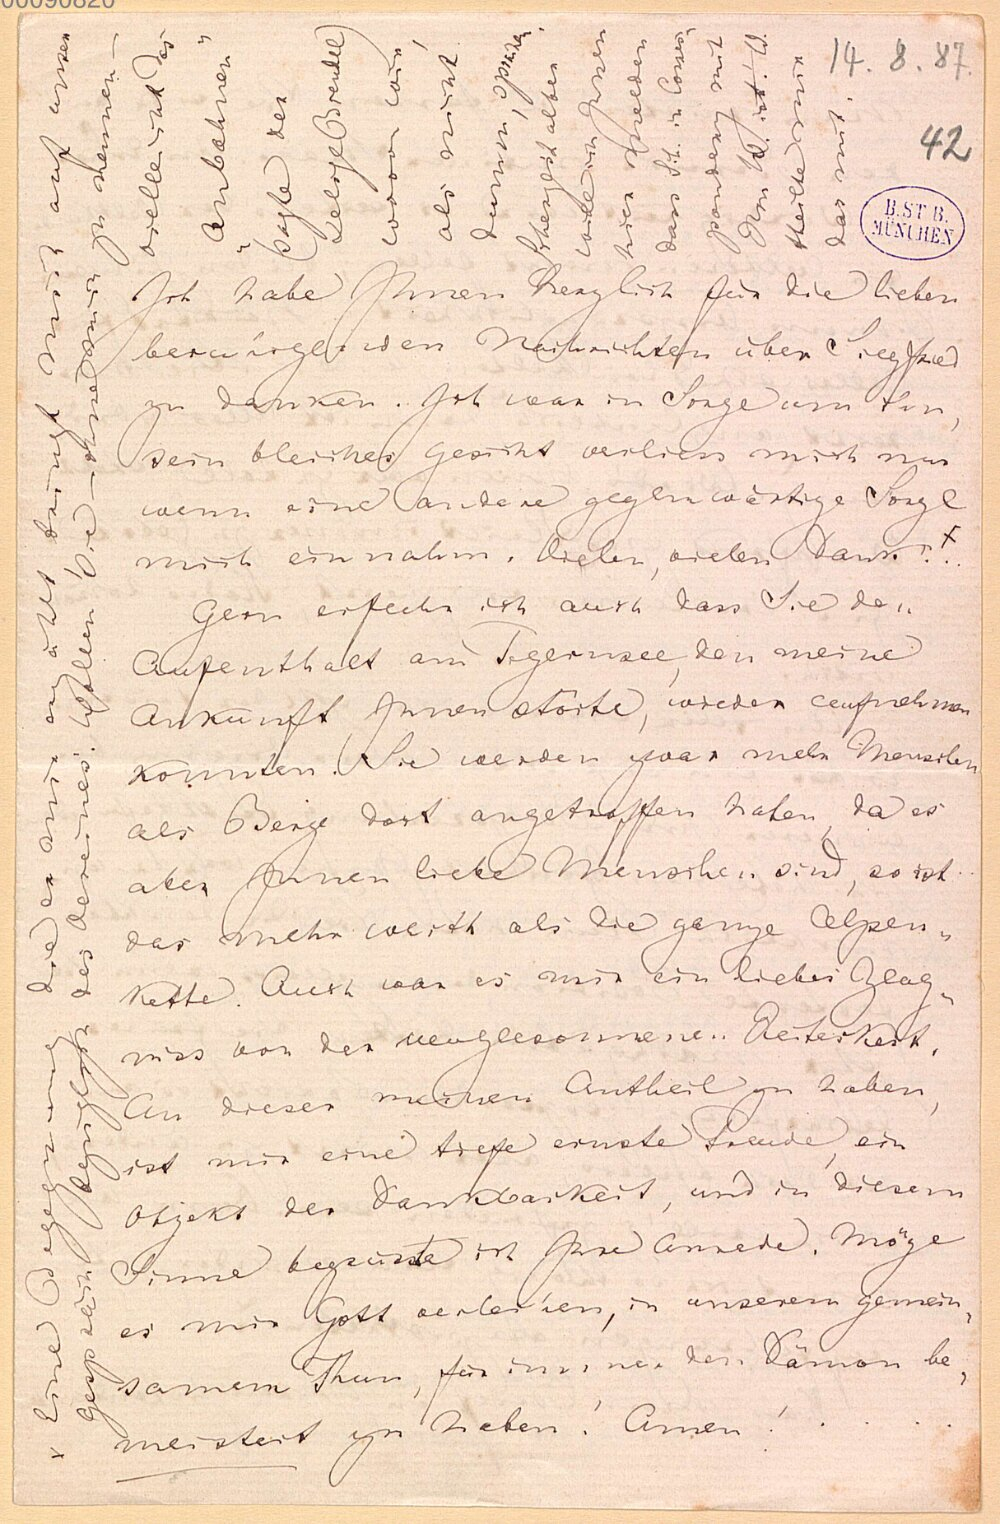 00090820
14. 8. 87.
42
B.ST.B.
MÜNCHEN
Ich habe Ihnen herzlich für die lieben
beruhigenden Nachrichten über Siegfried
zu danken. Ich war in Sorge um ihn,
sein bleiches Gesicht verliess mich nur
wenn eine andere gegenwärtige Sorge
mich einnahm. Vielen, vielen Dank!. x
Gern erfuhr ich auch dass Sie den
Aufenthalt am Tegernsee, den meine
Ankunft Ihnen störte, wieder aufnehmen
konnten. Sie werden zwar mehr Menschen
als Berge dort angetroffen haben, da es
aber Ihnen liebe Menschen sind, so ist
das mehr werth als die ganze Alpen„
kette. Auch war es mir ein liebes Zeug„
niss von der Heiterkeit.
An dieser meinen Antheil zu haben,
ist mir eine tiefe ernste Freude, ein
Objekt der Dankbarkeit, und in diesem
Sinne begrüsste ich Ihre Anrede. Möge
es mir Gott verleihen, in unserem gemein„
samem Thun, für immer den Dämon be„
meistert zu haben! Amen! . . . .
x Eine Begegnung die er mir erzählt bringt mich auf unser
Gespräch bezüglich des Vereines. Wollen Sie ihn mir zu nennen —
vielleicht das
„Anbahnen"
(sagte der
selige Brendel)
wovon wir
als nicht
dumm, sprachen.
Scherzhaft aber
würde ich Ihnen
hier melden
dass ich in Corres„
pondenz mit
Hrn W. ist. W.
theilte mir
das mit.